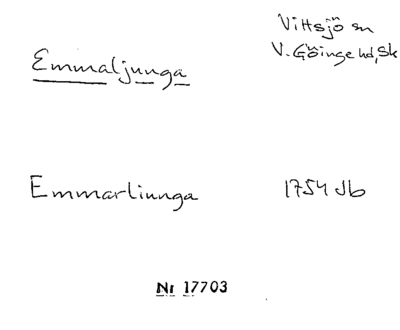 Vittsjö sn
Emmaljunga
V. Göinge hd, Sk
Emmarliunga
1754 Jb
Nr 17703